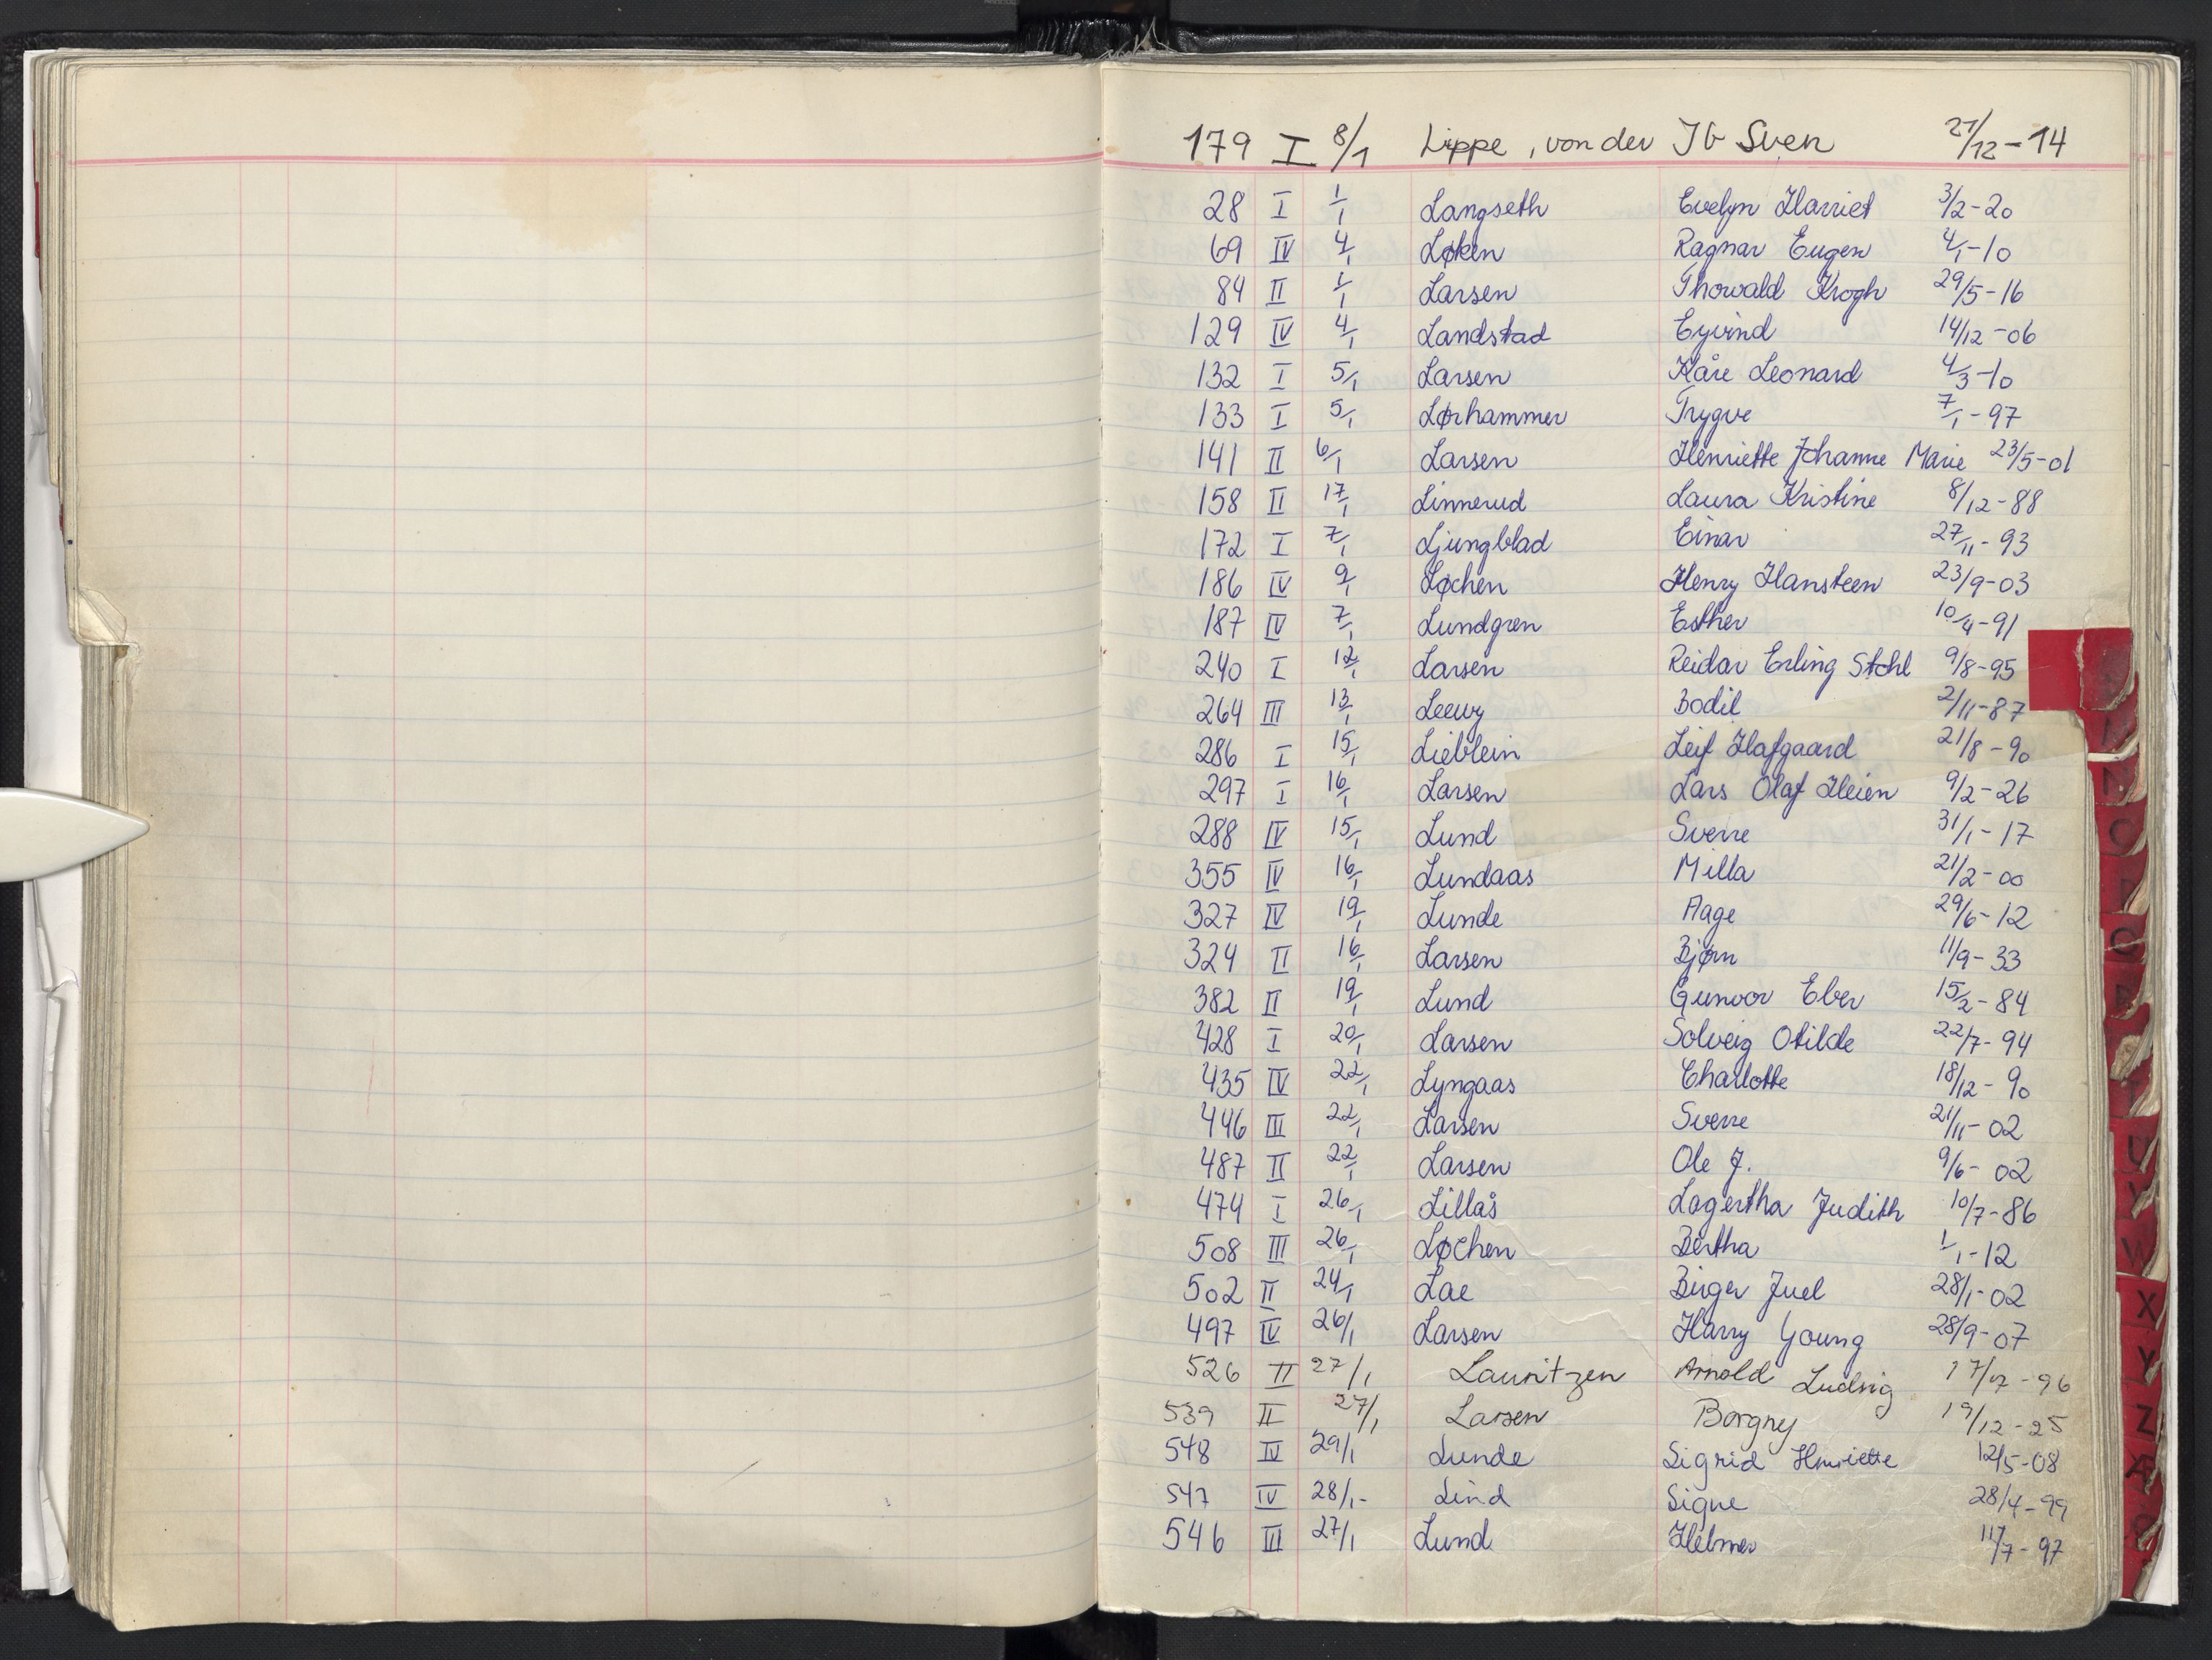 179 I 8/1 Lippe, von der Ib Sven 21/12-14
28 I 1/1 Langseth Evelyn Harriet 3/2-20
69 IV 4/1 Løken Ragnar Eugen 4/1-10
84 II 1/1 Larsen Thorvald Krogh 29/5-16
129 IV 4/1 Landstad Eyvind 14/12-06
132 I 5/1 Larsen Kåre Leonard 4/3-10
133 I 5/1 Lørhammer Trygve 7/1-97
141 II 6/1 Larsen Henriette Johanne Marie 23/5-01
158 II 17/1 Linnerud Laura Kristine 8/12-88
172 I 7/1 Ljungblad Einar 27/11-93
186 IV 9/1 Løchen Henry Hansteen 23/9-03
187 IV 7/1 Lundgren Esther 10/4-91
240 I 12/1 Larsen Reidar Erling 9/8-95
264 III 13/1 Leewy Bodil 2/11-87
286 I 15/1 Lieblein Leif Hafgaard 21/8-90
297 I 16/1 Larsen Lars Olaf Heien 9/2-26
288 IV 15/1 Lund Sverre 31/1-17
355 IV 16/1 Lundaas Milla 21/2-00
327 IV 19/1 Lunde Aage 29/6-12
324 II 16/1 Larsen Bjørn 11/9-33
382 II 19/1 Lund Gunvor Eber 15/2-84
428 I 20/1 Larsen Solveig Otilde 22/7-94
435 IV 22/1 Lyngaas Charlotte 18/12-90
446 III 22/1 Larsen Sverre 21/11-02
487 II 22/1 Larsen Ole J. 9/6-02
474 I 26/1 Lillås Lagertha Judith 10/7-86
508 III 26/1 Løchen Bertha 1/1-12
502 II 24/1 Lae Birger Juel 28/1-02
497 IV 26/1 Larsen Harry Young 28/9-07
526 II 27/1 Lauritzen Arnold Ludvig 17/7-96
539 II 27/1 Larsen Borgny 19/12-25
548 IV 29/1 Lunde Sigrid Henriette 12/5-08
547 IV 28/1- Lind Signe 28/4-99
546 III 27/1 Lund Helmer 11/7-97
O
U
V
W
X
Y
Z
Æ